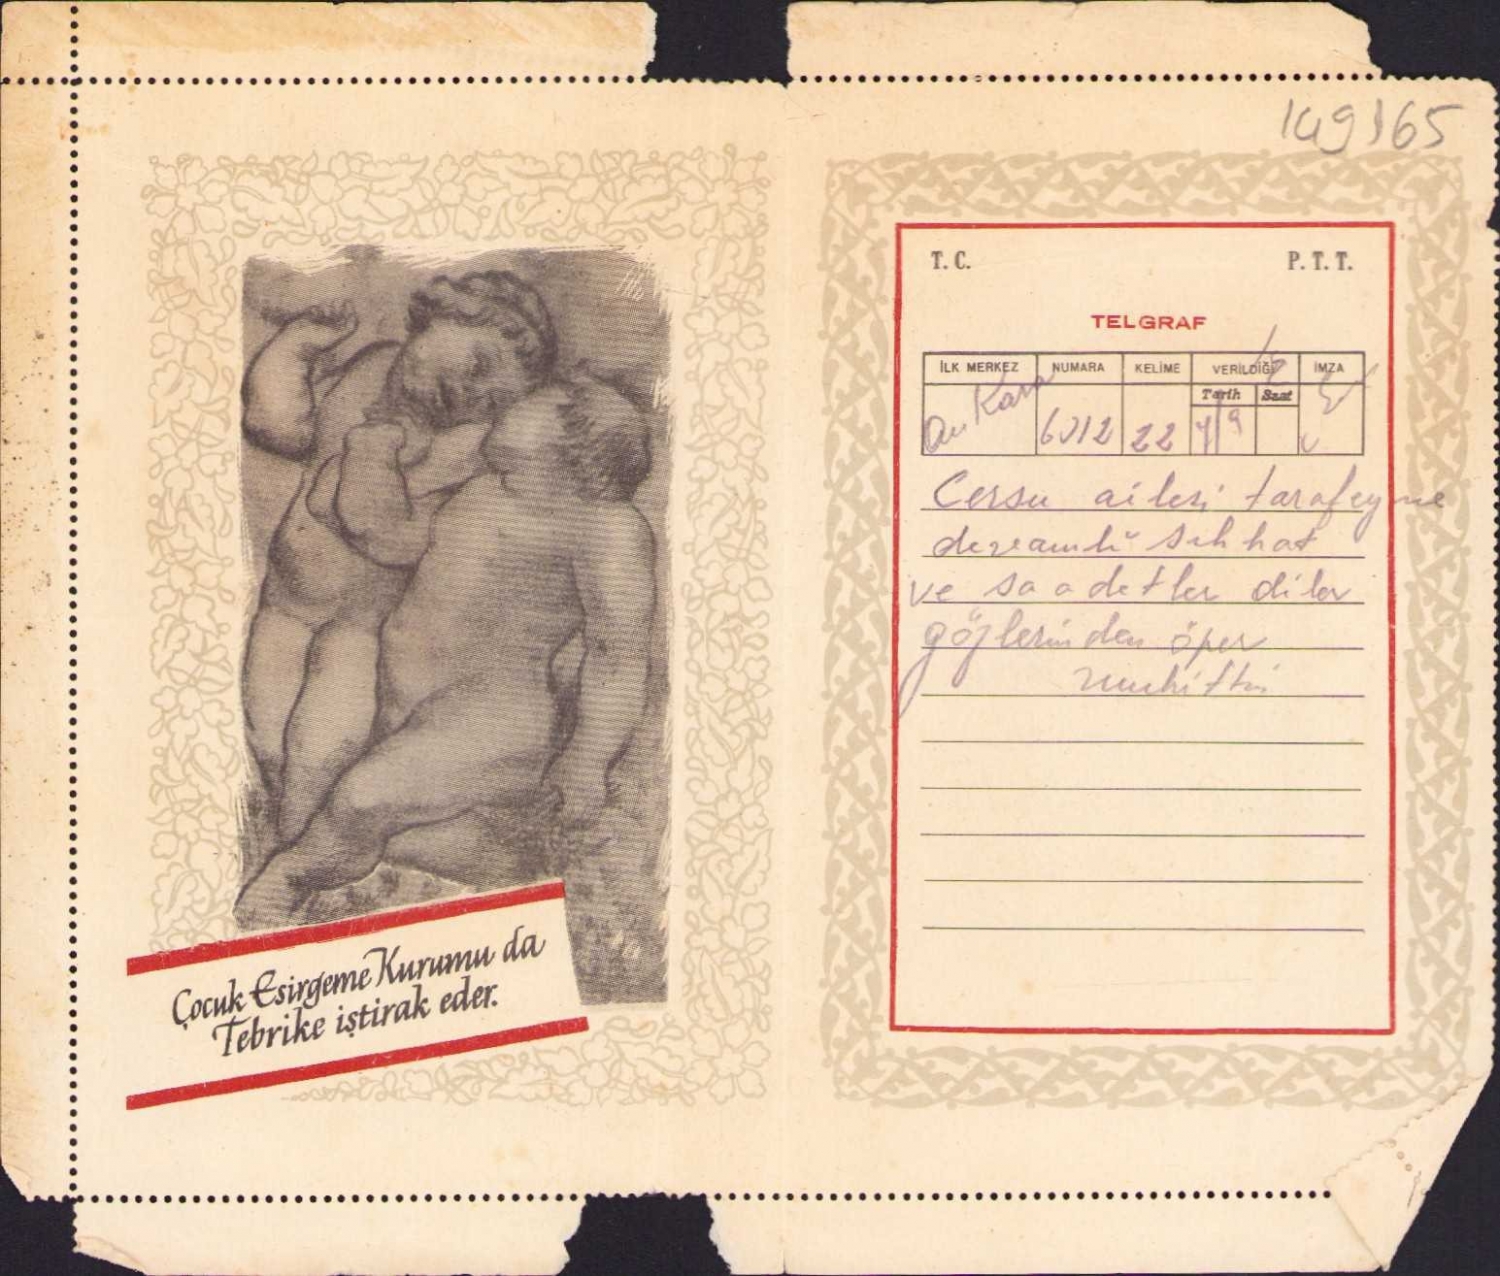 149165
T. C. P. T. T.
TELGRAF
İLK MERKEZ NUMARA KELİME VERİLDİĞİ İMZA
Tarih Saat
Ankara 6012 22 4/9
Cersu ailesi tarafeyne
devamlı sıhhat
ve saadetler diler
gözlerinden öper
Muhittin
Çocuk Esirgeme Kurumu da
Tebrike iştirak eder.